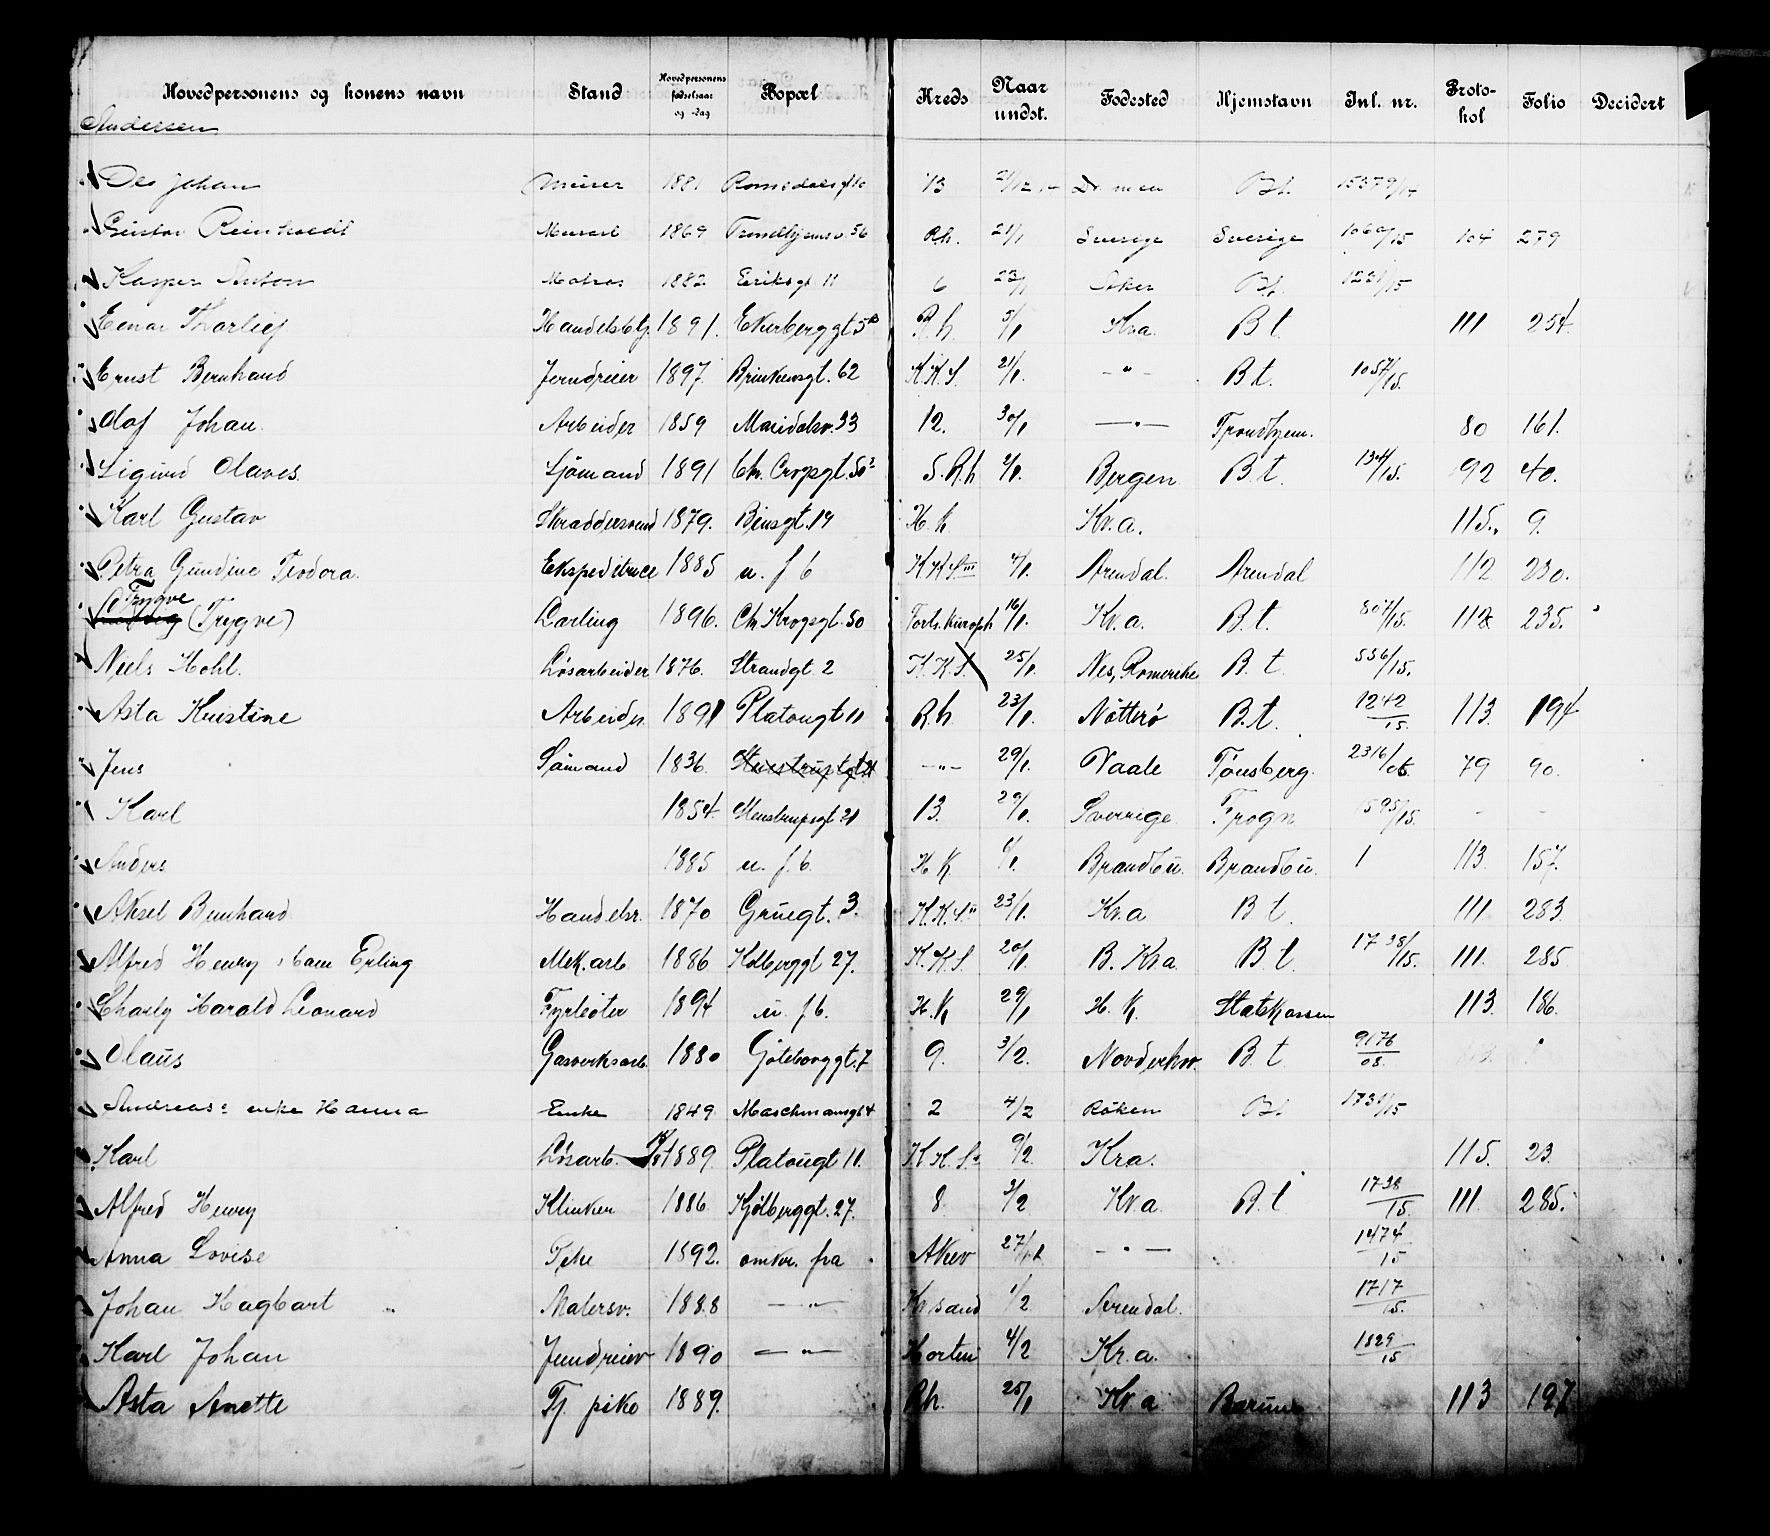 Hovedpersonens og konens navn Stand Hovedpersonens fødselsaar og -dag Bopæl Kreds Naar undst. Fødested Hjemstavn Inl. nr. Protokol Folio Decidert
Andersen
Johan Murer 1881 13 Bt.
Gustav Reinholdt Murarb 1869 Trondhjemsv. 56 R.h. 21/1 Sverige Sverige 1060/15 104 279
Kasper Anton Matros 1882 Eriksgt 11 6 23/1 Aker Bt. 1231/15
Einar Thorleif 1891. Ekerberggt 5 B R.h. 5/1 Kr.a. B.t. 111 254.
Ernst Bernhard Jerndreier 1897. Brinkensgt. 62 K.K.S. 21/1. - " - B.t. 1057/15.
Olaf Johan. Arbeider 1859 Maridalsv. 33 12. 30/1 — " — Trondhjem. 80 161.
Sigurd Olaves. Sjömand 1891 Chr. Crogsgt. 50² S. R.h Bergen B.t. 1304/15. 92 40.
Karl Gustav Skræddersvend 1879. Bensgt. 19 K.h. Kr.a. 115. 9.
Petra Gundine Teodora. Ekspeditrice 1885 u. f b Arendal. Arendal 112 230.
Trygve (Trygve) Lærling 1896. Chr Krogsgt. 50 16/1. Kr.a. B.t. 807/15. 112 235.
Niels Hohl. Løsarbeider 1876. Strandgt 2 K.K.S. 25/1 Nes, Romerike B.t. 556/15.
Asta Kristine Arbeider. 1891 Platougt 11 R.h. 23/1. Nötterö B.t. 1242/15. 113. 194
Jens Sömand 1836. — " — 29/1. Vaale Tönsberg. 2316/06. 79 90.
Karl 1854. Stenstrupsgt 21 13. 29/1. Sverrige Frogn 1595/15. - -
Anders 1885 u. f. b. H K Brandbu. Brandbu. 1 113. 157.
Aksel Bernhard Handelsr. 1870 Gruegt. 3. 23/1. Kr.a B t. 111 283
Alfred Henry, barn Erling Mek. arb. 1886 Kolberggt 27. K.K.S. 20/1. B. Kr.a B t. 1738/15. 111. 285
Charly Harald Leonard Fyrbøter 1894 u. f b. H.K 29/1 H. K. Statskassen 113. 186.
Olaus Gasverksarb. 1880 Göteborggt. 7 9. 3/2. Norderhov. B. t 9176/08.
Andreas: enke Hanna Enke 1849 Maschmansgt 4 2 4/2 Røken Bt 1731/15
Karl Løsarb. 1889. Platougt 11. 9/2. Kra. 115. 23
Alfred Henry Klinker 1886. Kjölberggt. 27. 8. 3/2 Kr.a. B.t 1738/15. 111. 285.
Anna Lovise 1892. omkr. fra Aker — " — 1474/15
Johan Hagbart Malersv. 1888 — " — Kr.sand 1/2 Arendal. 1717/15.
Karl Johan Jerndreier 1890 — " — Horten 4/2 Kr.a. 1829/15
Asta Anette Tj. pike 1889. R.h. 25/1 Kr.a Bærum 113 197